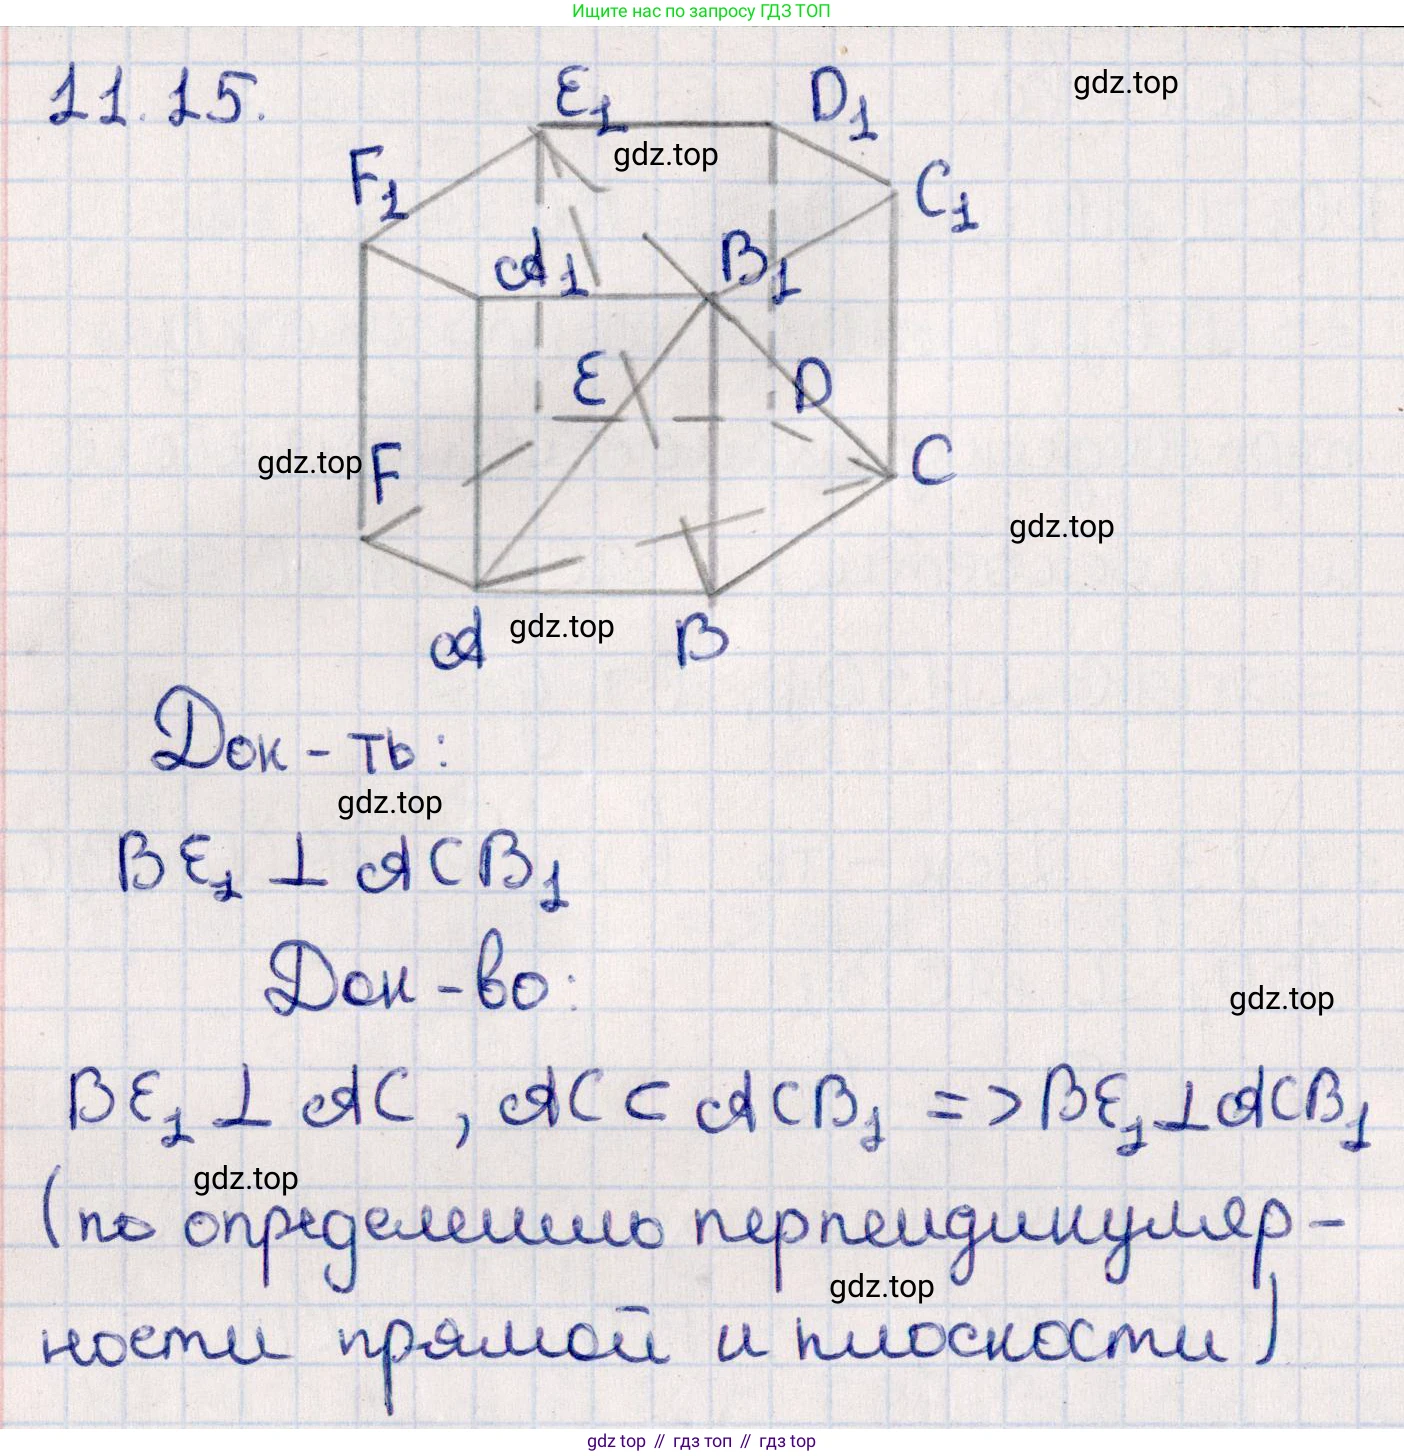 Ищите нас по запросу ГДЗ ТОП
11.15.
E₁
D₁
gdz.top
gdz.top
F₁
C₁
A₁
B₁
E
D
gdz.top
F
C
gdz.top
A
gdz.top
B
Док-ть:
gdz.top
BE₁ ⊥ ACB₁
Док-во:
gdz.top
BE₁ ⊥ AC, AC ⊂ ACB₁ => BE₁ ⊥ ACB₁
gdz.top
(по определению перпендикуляр-
gdz.top
ности прямой и плоскости)
gdz top // гдз топ // гдз top